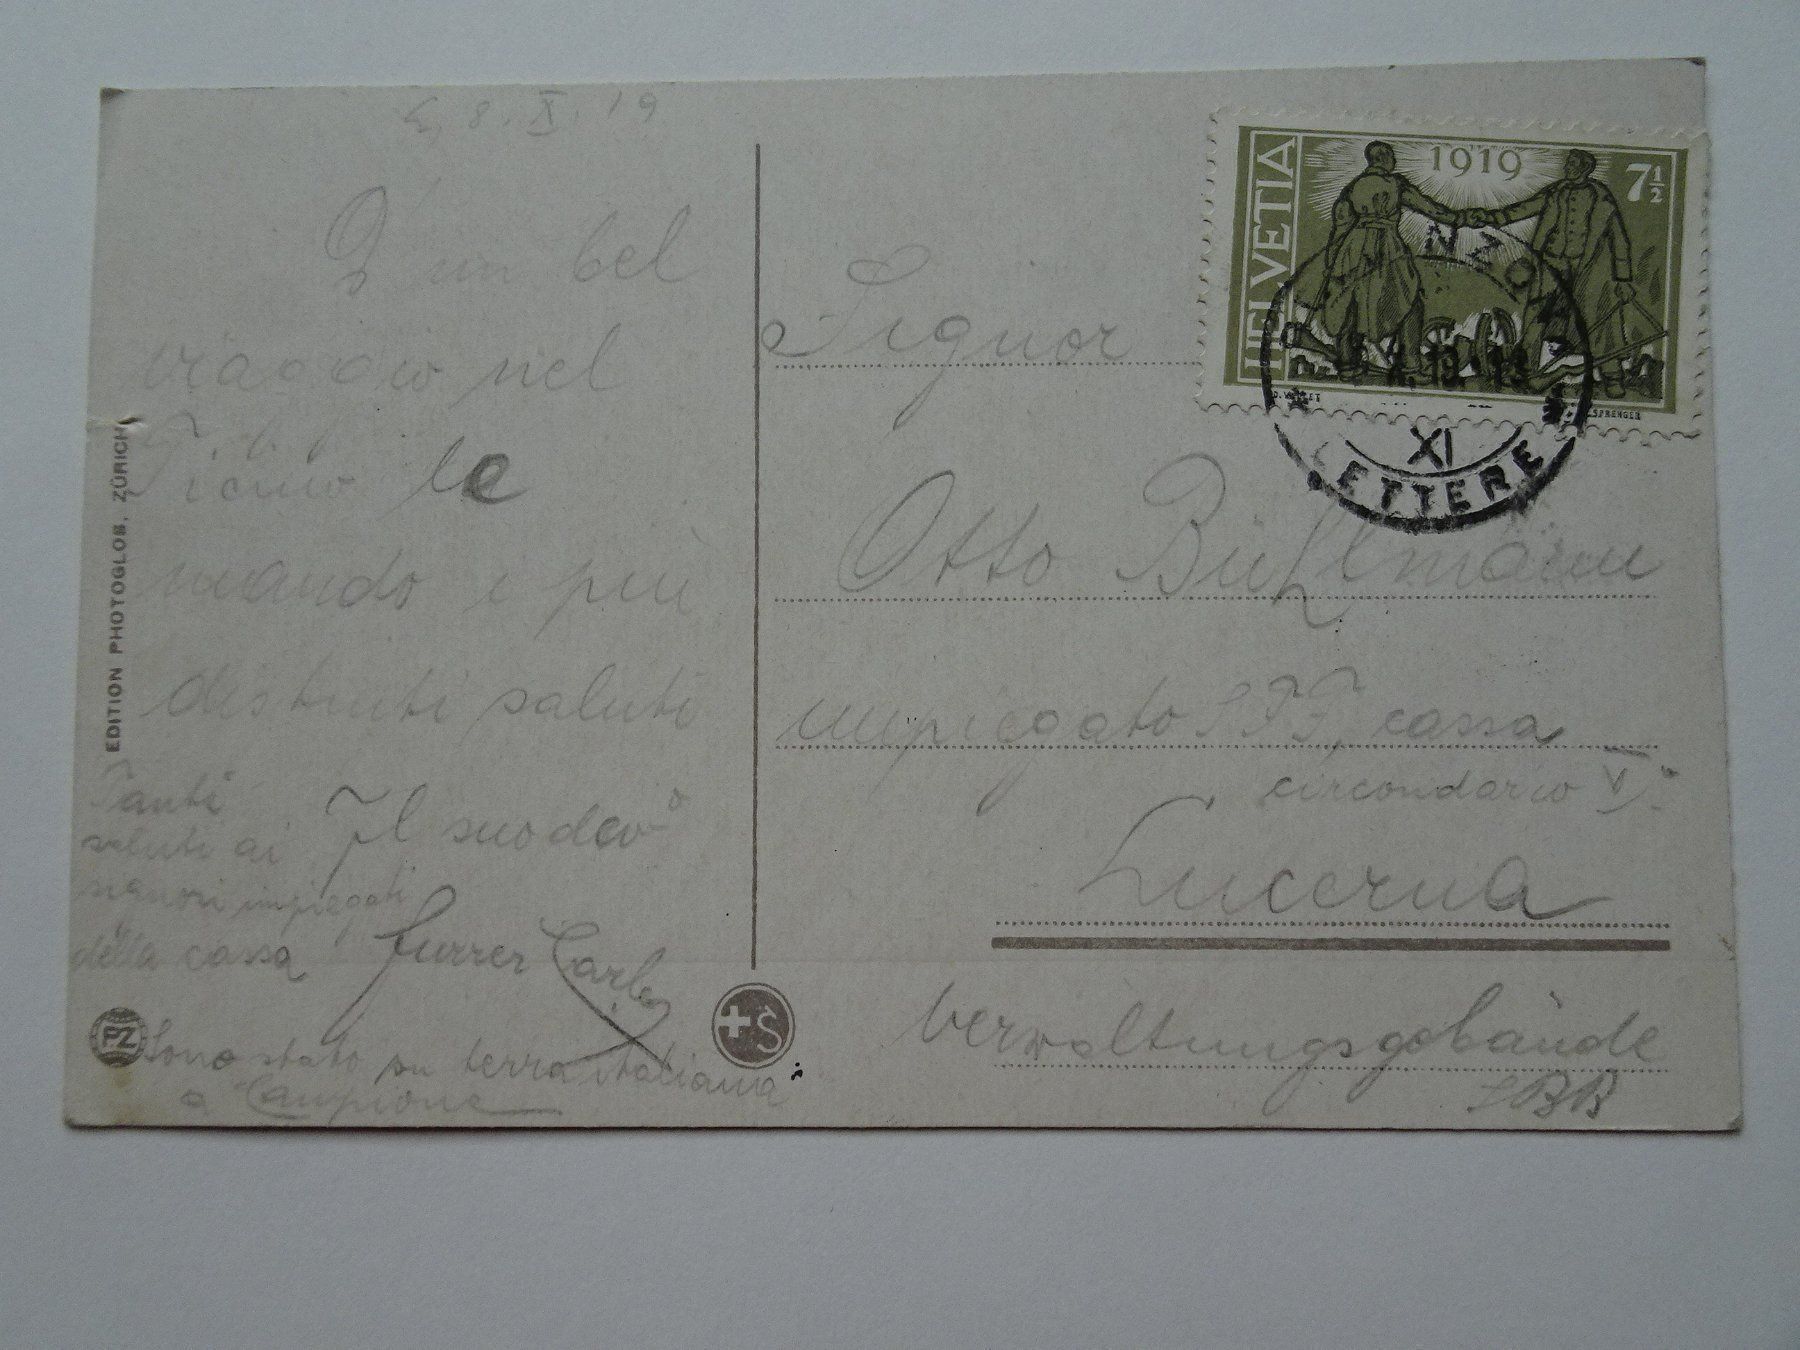 8. X. 19
D'un bel
viaggio nel
Ticino le
mando i più
distinti saluti
Il suo dev°
Furrer Carlo
Tanti
saluti ai
signori impiegati
della cassa
Sono stato su terra italiana
a Campione
EDITION PHOTOGLOB, ZÜRICH
PZ
HELVETIA
1919
7½
SPRENGER
XI
LETTERE
Signor
Otto
impiegato SFF, cassa
circondario V°
Lucerna
Verwaltungsgebäude
SBB